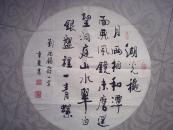 湖光穐
月兩相和潭
面無風鏡未磨遥
望洞庭山水翠白
銀盤裡一青螺
劉禹錫詩一首